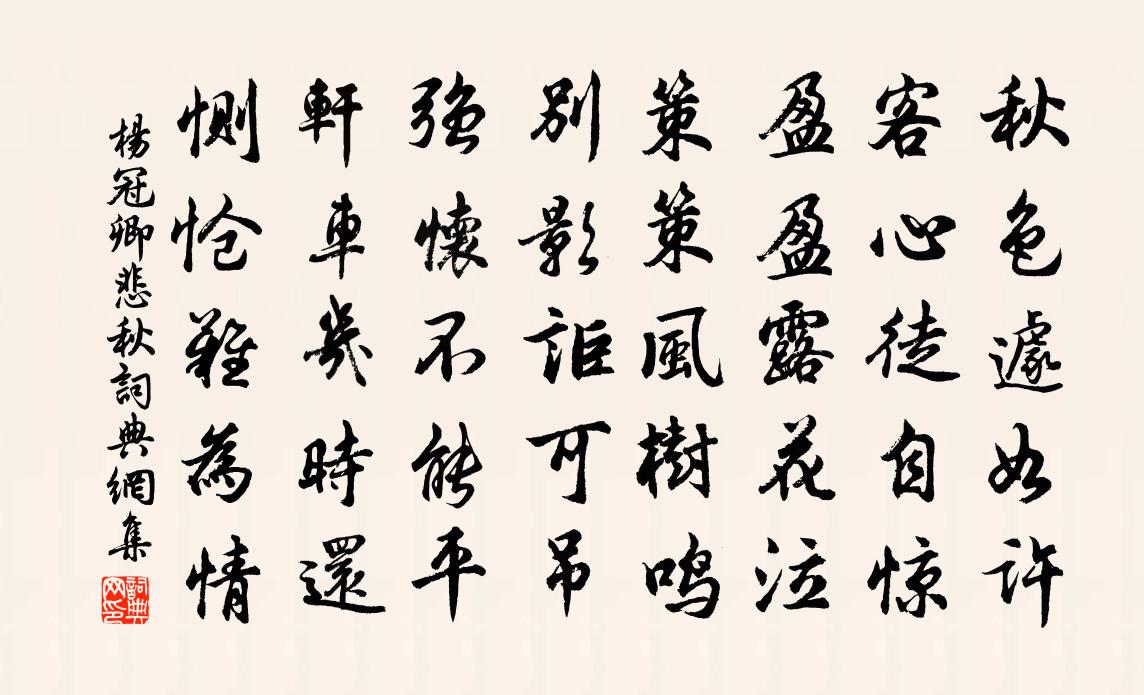 秋色遽如许
客心徒自惊
盈盈露花泣
策策風樹鸣
別影詎可吊
強懷不能平
軒車幾時還
惻愴難為情
楊冠卿悲秋詞典網集
詞典网印